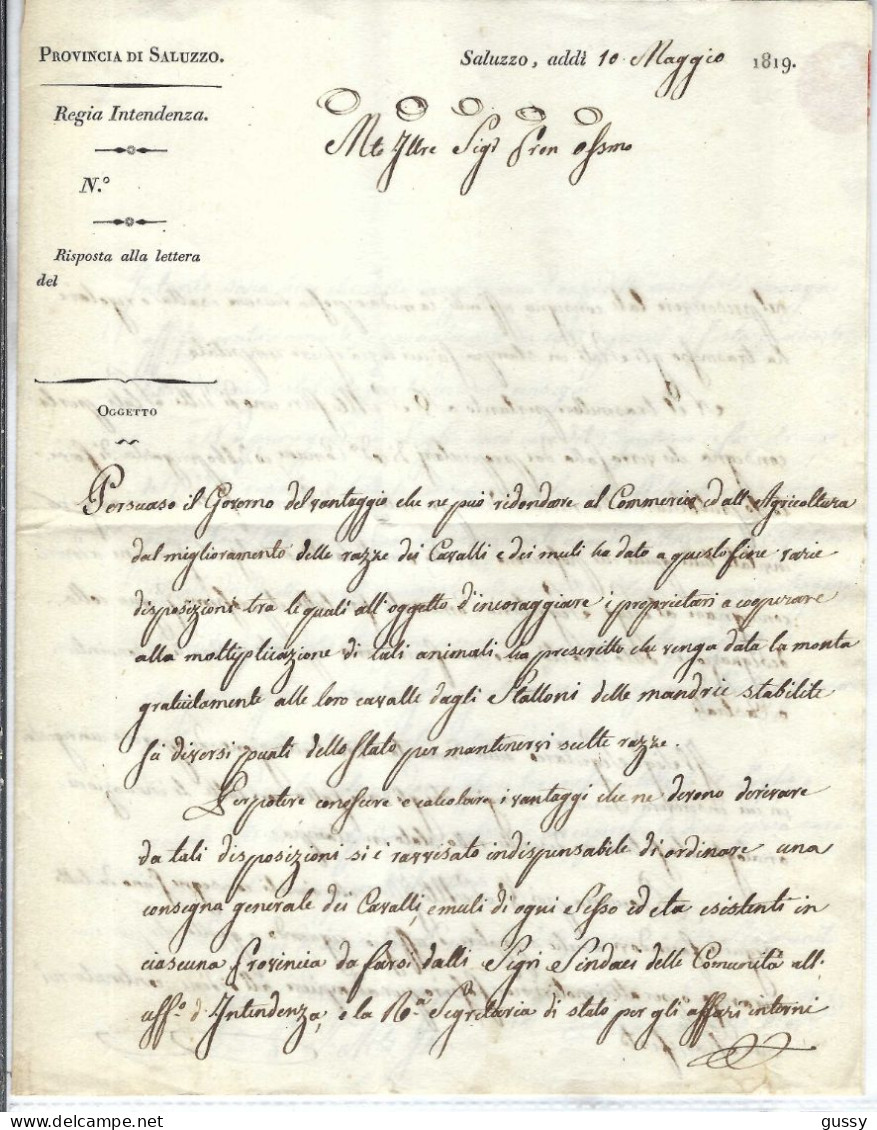 PROVINCIA DI SALUZZO.
Saluzzo, addì 10 Maggio 1819.
Regia Intendenza.
N.°
Risposta alla lettera
del
OGGETTO
Mto Illre Sigr Pron Ossmo
Persuaso il Governo del vantaggio che ne può ridondare al Commercio ed all'Agricoltura
dal miglioramento delle razze dei Cavalli e dei muli ha dato a questo fine varie
disposizioni tra le quali all'oggetto d'incoraggiare i proprietari a cooperare
alla moltiplicazione di tali animali ha prescritto che venga data la monta
gratuitamente alle loro cavalle dagli Stalloni delle mandrie stabilite
in diversi punti dello Stato per mantenervi scelte razze.
Per potere conoscere e calcolare i vantaggi che ne devono derivare
da tali disposizioni si è ravvisato indispensabile di ordinare una
consegna generale dei Cavalli, e muli di ogni Sesso ed età esistenti in
ciascuna Provincia da farsi dalli Sigri Sindaci delle Comunità all'
uffo. d'Intendenza, e la Ra. Segretaria di stato per gli affari interni
gussy